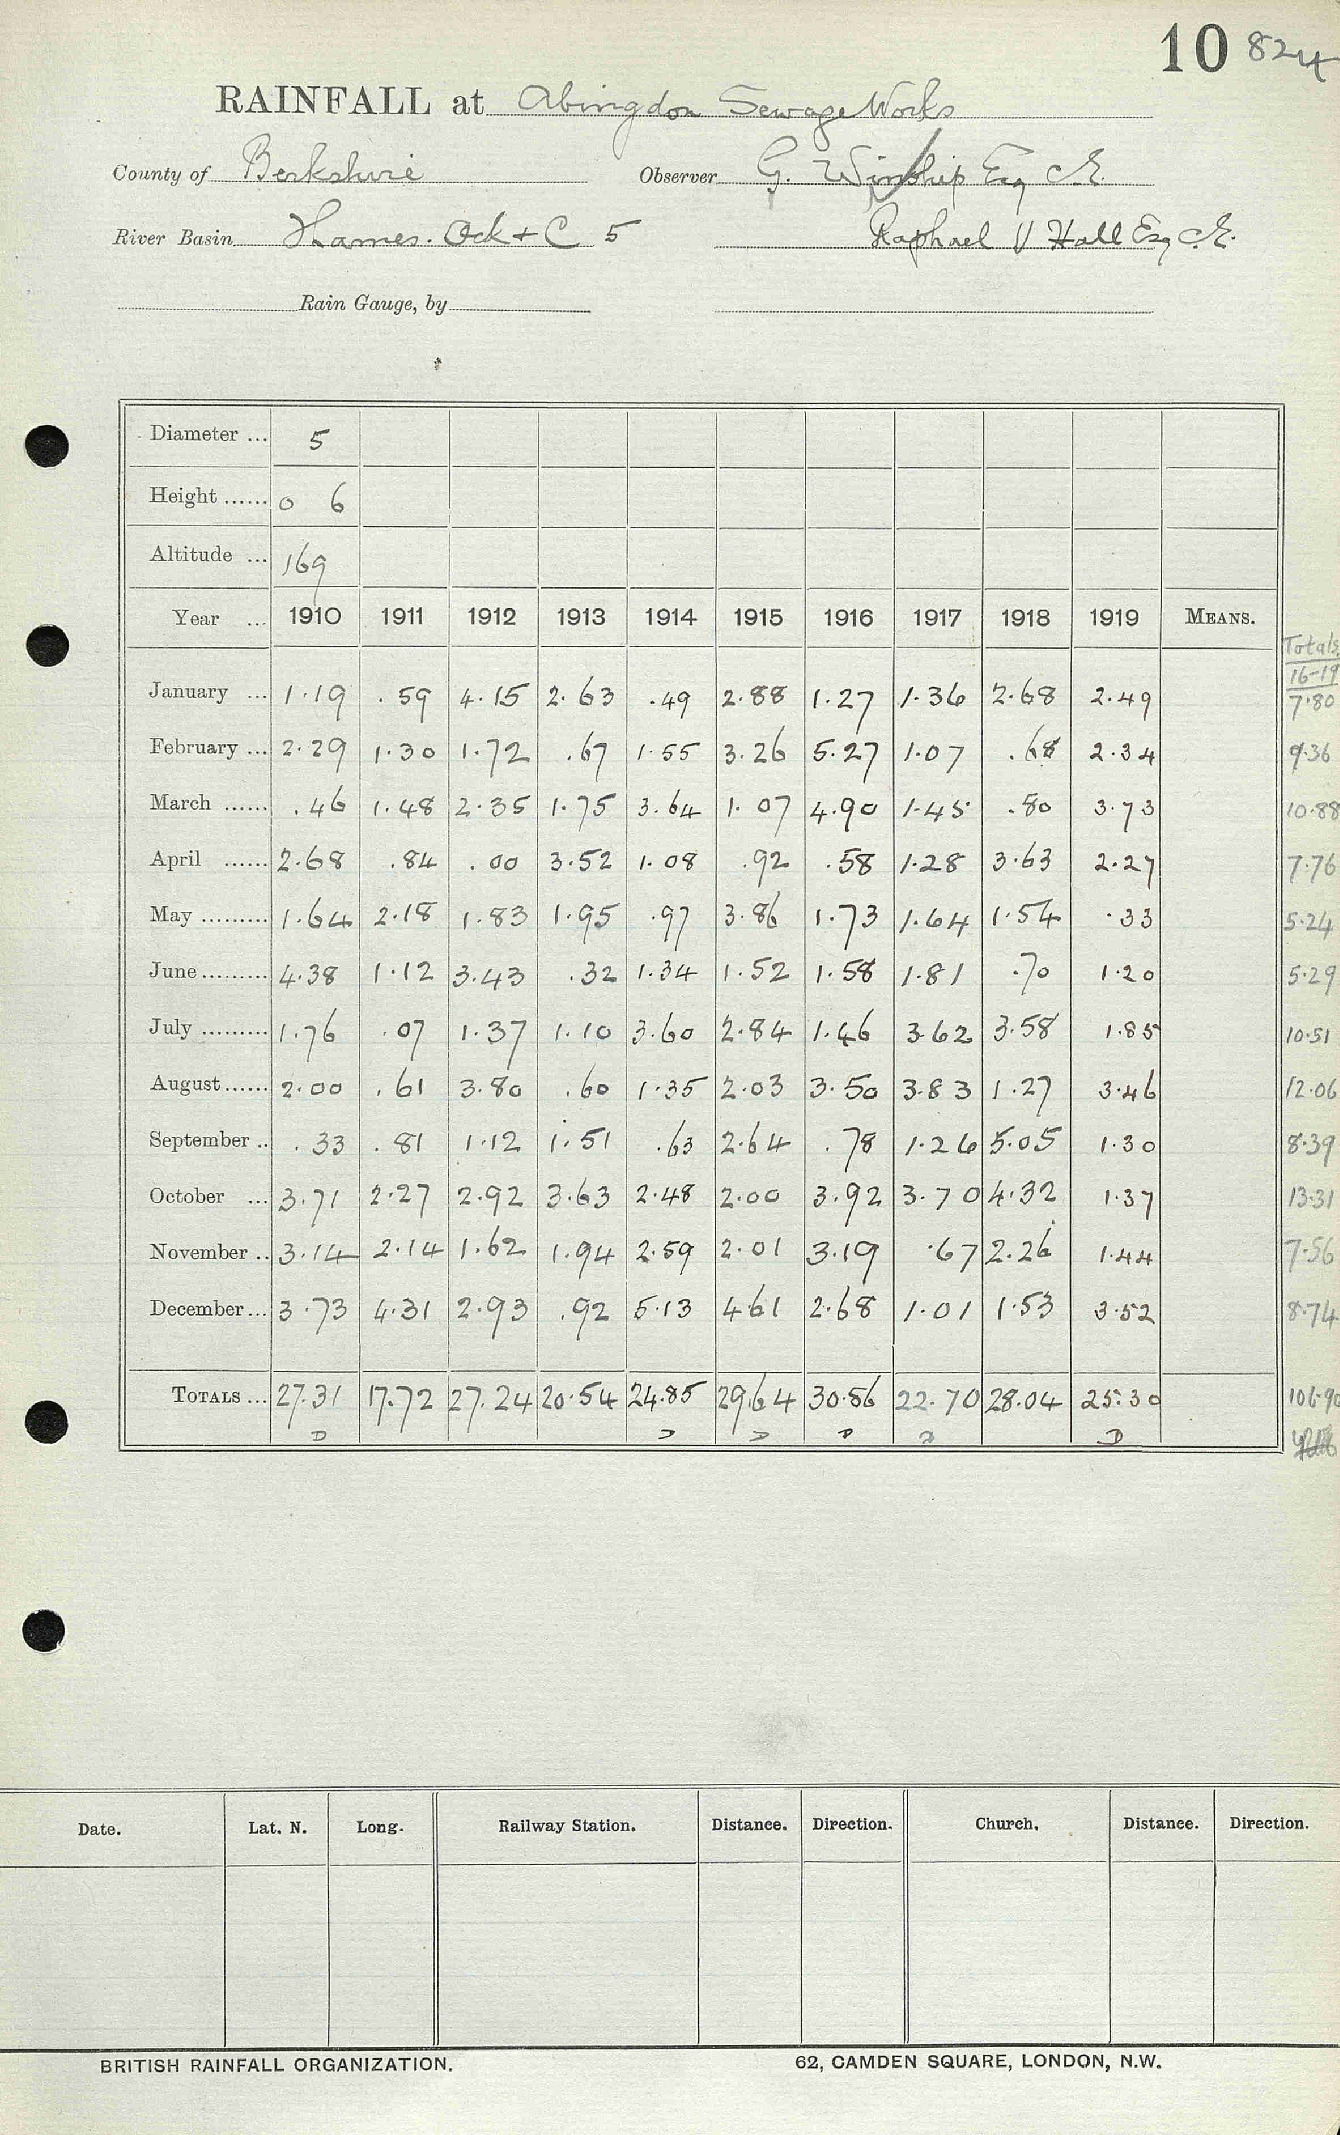 10 824
RAINFALL at Abingdon Sewage Works
County of Berkshire Observer G. Winship Esq C.E.
River Basin Thames. Ock + C 5 Raphael V Hall Esq C.E.
Rain Gauge, by
Diameter ... 5
Height ...... 0 6
Altitude ... 169
Year ... 1910 1911 1912 1913 1914 1915 1916 1917 1918 1919 MEANS.
Totals
16-19
January ... 1.19 .59 4.15 2.63 .49 2.88 1.27 1.36 2.68 2.49 7.80
February ... 2.29 1.30 1.72 .67 1.55 3.26 5.27 1.07 .68 2.34 9.36
March ...... .46 1.48 2.35 1.75 3.64 1.07 4.90 1.45 .80 3.73 10.88
April ...... 2.68 .84 .00 3.52 1.08 .92 .58 1.28 3.63 2.27 7.76
May ......... 1.64 2.18 1.83 1.95 .97 3.86 1.73 1.64 1.54 .33 5.24
June ......... 4.38 1.12 3.43 .32 1.34 1.52 1.58 1.81 .70 1.20 5.29
July ......... 1.76 .07 1.37 1.10 3.60 2.84 1.46 3.62 3.58 1.85 10.51
August ...... 2.00 .61 3.80 .60 1.35 2.03 3.50 3.83 1.27 3.46 12.06
September .. .33 .81 1.12 1.51 .63 2.64 .78 1.26 5.05 1.30 8.39
October ... 3.71 2.27 2.92 3.63 2.48 2.00 3.92 3.70 4.32 1.37 13.31
November .. 3.14 2.14 1.62 1.94 2.59 2.01 3.19 .67 2.26 1.44 7.56
December ... 3.73 4.31 2.93 .92 5.13 4.61 2.68 1.01 1.53 3.52 8.74
TOTALS ... 27.31 17.72 27.24 20.54 24.85 29.64 30.86 22.70 28.04 25.30 106.90
D D D D D D
Date. Lat. N. Long. Railway Station. Distance. Direction. Church. Distance. Direction.
BRITISH RAINFALL ORGANIZATION. 62, CAMDEN SQUARE, LONDON, N.W.